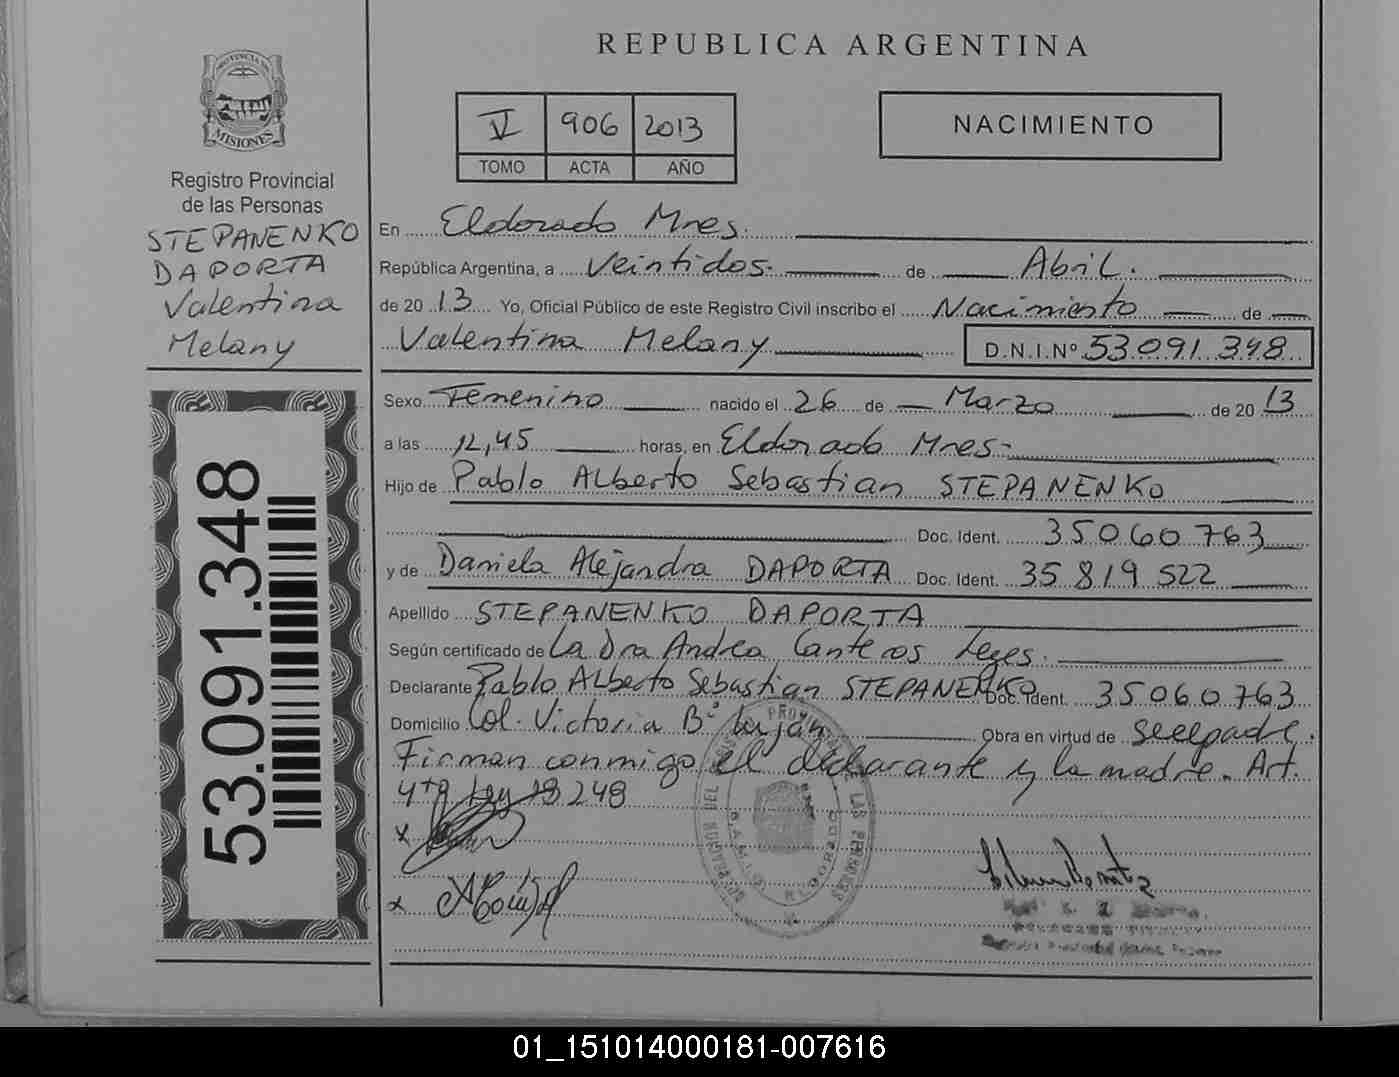 REPUBLICA ARGENTINA
PROVINCIA DE
MISIONES
Registro Provincial
de las Personas
STEPANENKO
DAPORTA
Valentina
Melany
53.091.348
V 906 2013
TOMO ACTA AÑO
NACIMIENTO
En Eldorado Mnes.
República Argentina, a Veintidos. de Abril.
de 20 13 Yo, Oficial Público de este Registro Civil inscribo el Nacimiento de
Valentina Melany D.N.I.Nº 53.091.348
Sexo Femenino nacido el 26 de Marzo de 20 13
a las 12,45 horas, en Eldorado Mnes-
Hijo de Pablo ALberto Sebastian STEPANENKO
Doc. Ident. 35060763
y de Daniela Alejandra DAPORTA Doc. Ident. 35 819 522
Apellido STEPANENKO DAPORTA
Según certificado de La Dra Andrea Canteros
Declarante Pablo ALberto Sebastian STEPANENKO Doc. Ident. 35060763
Domicilio Col. Victoria Bº Luján Obra en virtud de
Firman conmigo el declarante y la madre. Art.
Ley 18248
x
x
01_151014000181-007616